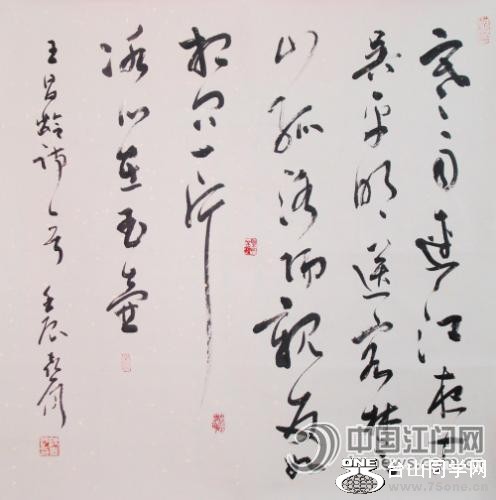 寒雨連江夜入
吴平明送客楚
山孤洛陽親友如
相问一片
冰心在玉壶
王昌龄诗一首 壬辰
中国江门网
ONE
台山同学网
www.75one.com